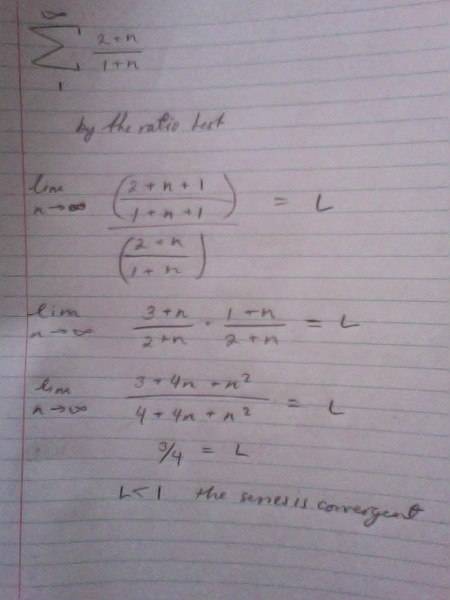 ∞
∑ (2+n)/(1+n)
1
by the ratio test
lim n→∞ ((2+n+1)/(1+n+1))/((2+n)/(1+n)) = L
lim n→∞ (3+n)/(2+n) · (1+n)/(2+n) = L
lim n→∞ (3+4n+n²)/(4+4n+n²) = L
3/4 = L
L<1 the series is convergent